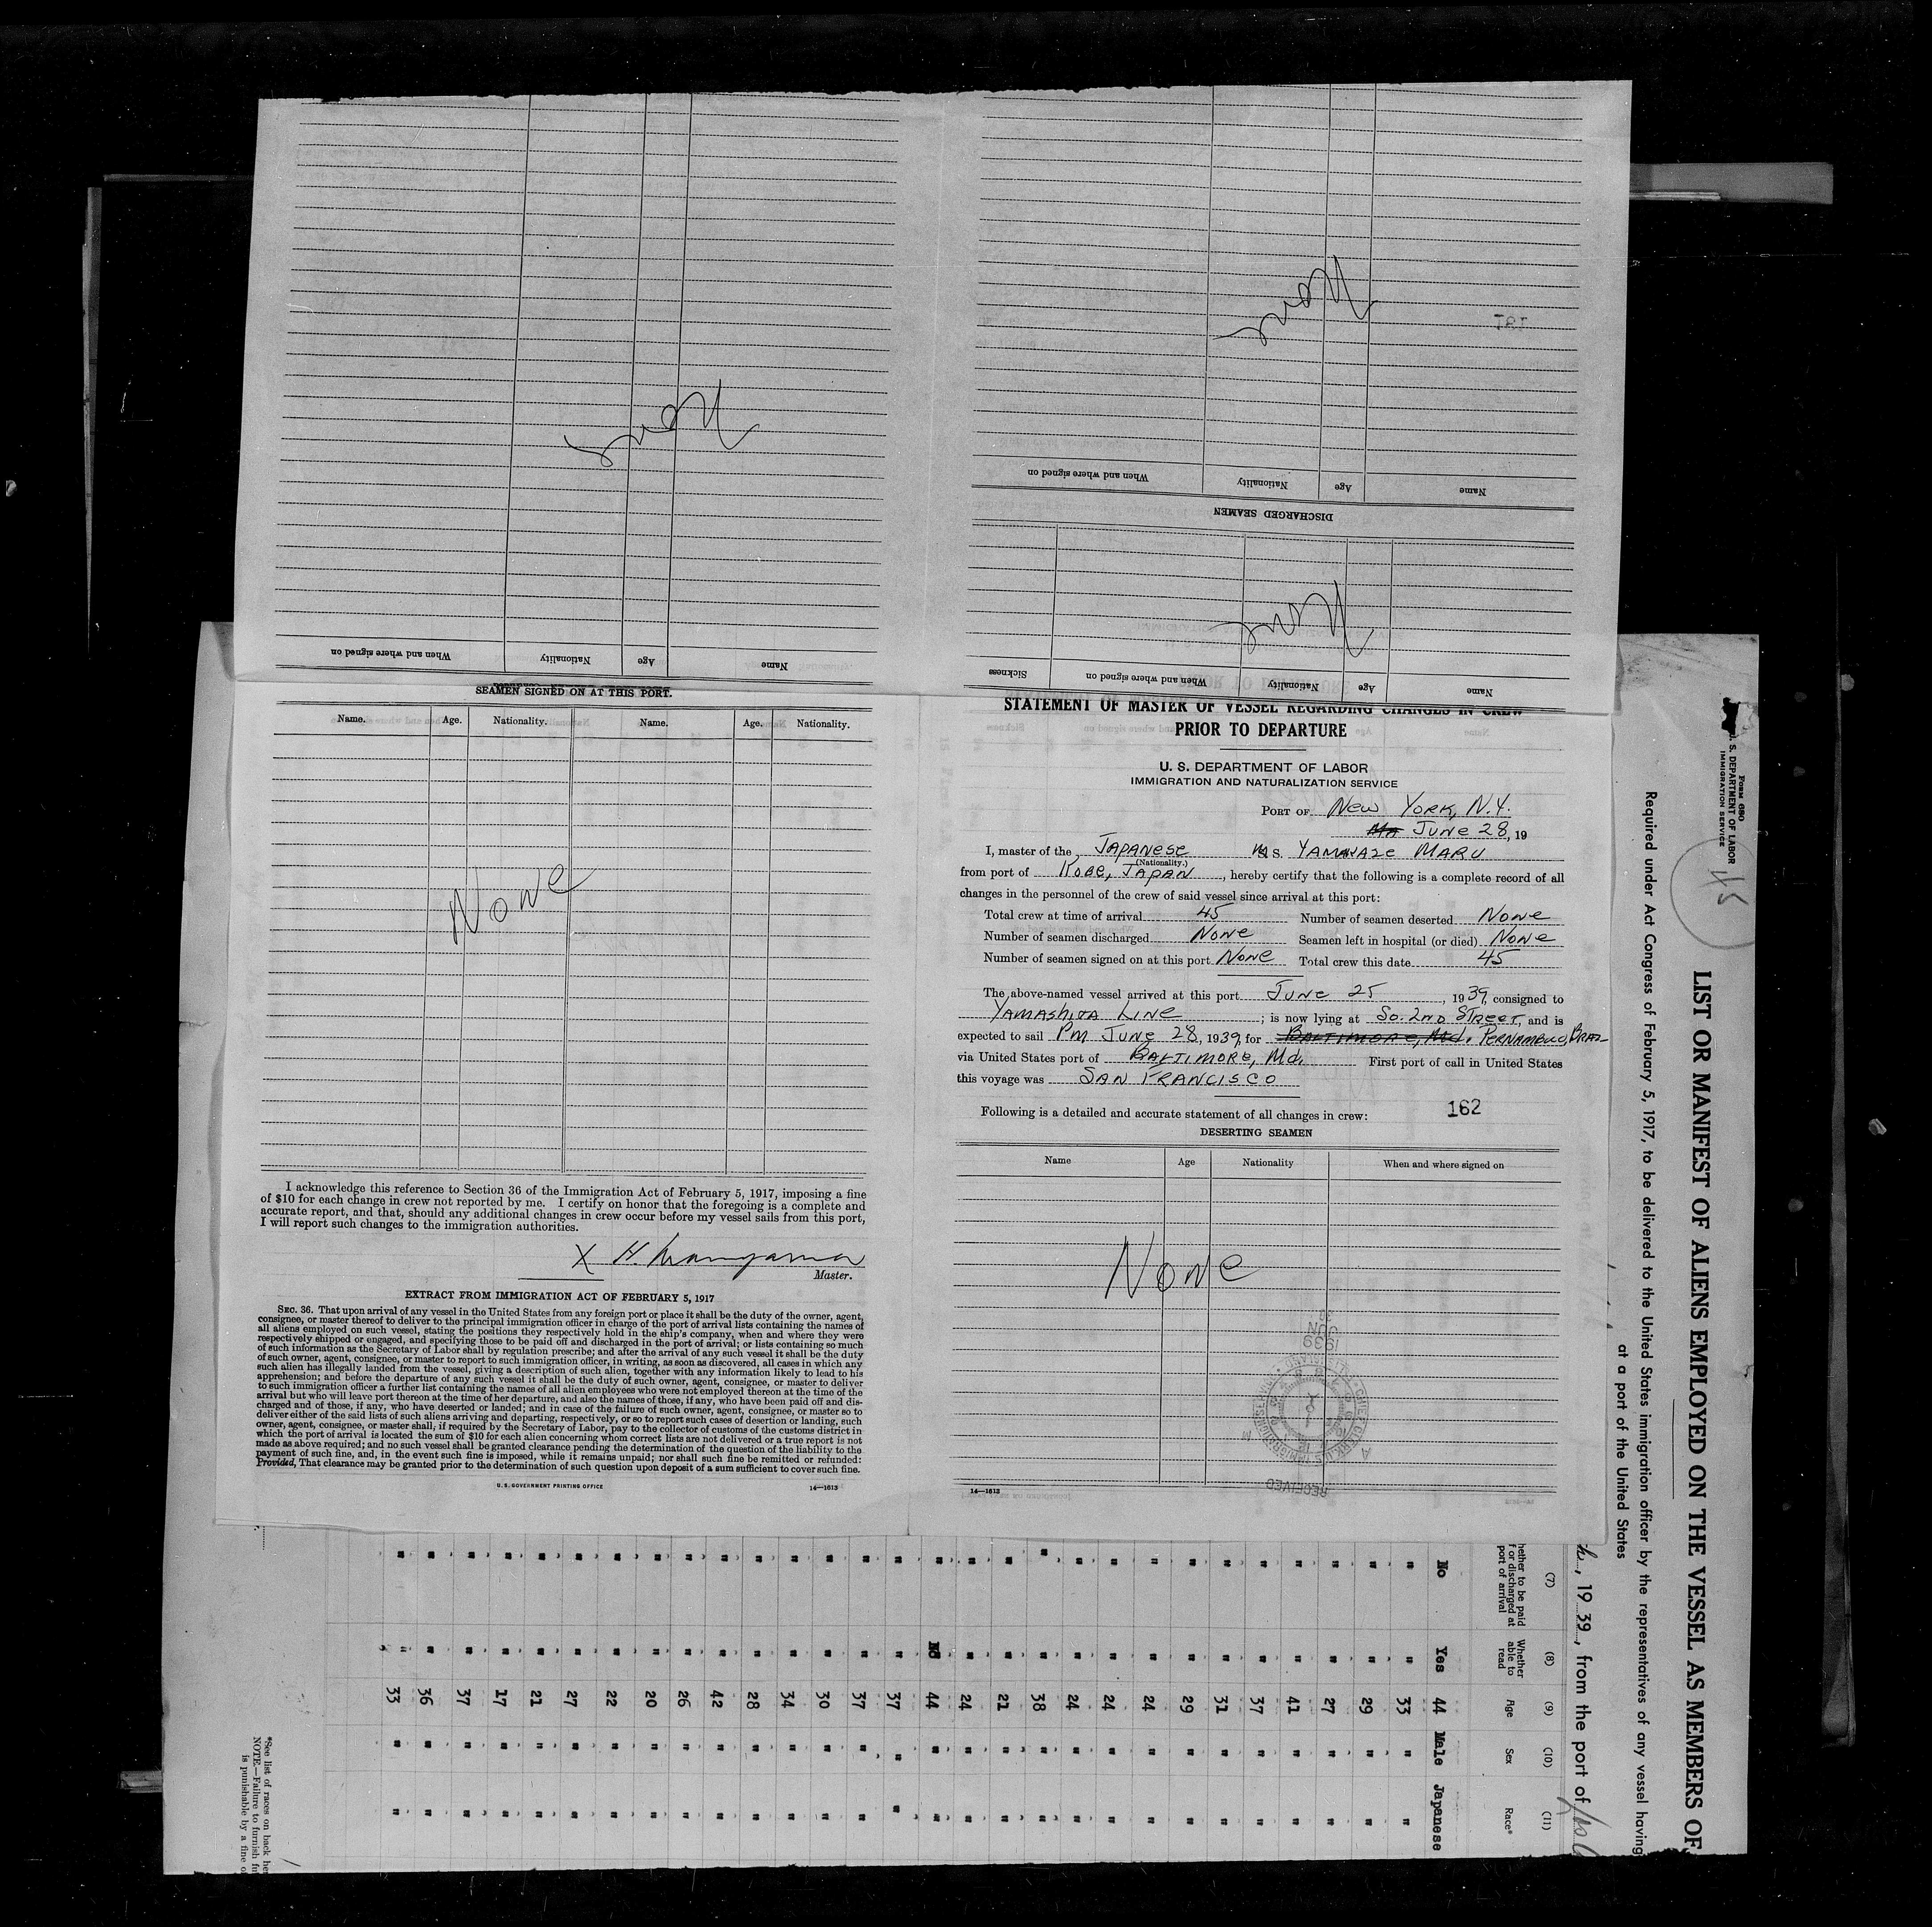 When and where signed on Nationality Age Name
None
None
181
When and where signed on Nationality Age Name
DISCHARGED SEAMEN
None
Sickness When and where signed on Nationality Age Name
SEAMEN SIGNED ON AT THIS PORT.
Name. Age. Nationality. Name. Age. Nationality.
None
I acknowledge this reference to Section 36 of the Immigration Act of February 5, 1917, imposing a fine
of $10 for each change in crew not reported by me. I certify on honor that the foregoing is a complete and
accurate report, and that, should any additional changes in crew occur before my vessel sails from this port,
I will report such changes to the immigration authorities.
X H.
Master.
EXTRACT FROM IMMIGRATION ACT OF FEBRUARY 5, 1917
SEC. 36. That upon arrival of any vessel in the United States from any foreign port or place it shall be the duty of the owner, agent,
consignee, or master thereof to deliver to the principal immigration officer in charge of the port of arrival lists containing the names of
all aliens employed on such vessel, stating the positions they respectively hold in the ship's company, when and where they were
respectively shipped or engaged, and specifying those to be paid off and discharged in the port of arrival; or lists containing so much
of such information as the Secretary of Labor shall by regulation prescribe; and after the arrival of any such vessel it shall be the duty
of such owner, agent, consignee, or master to report to such immigration officer, in writing, as soon as discovered, all cases in which any
such alien has illegally landed from the vessel, giving a description of such alien, together with any information likely to lead to his
apprehension; and before the departure of any such vessel it shall be the duty of such owner, agent, consignee, or master to deliver
to such immigration officer a further list containing the names of all alien employees who were not employed thereon at the time of the
arrival but who will leave port thereon at the time of her departure, and also the names of those, if any, who have been paid off and dis-
charged and of those, if any, who have deserted or landed; and in case of the failure of such owner, agent, consignee, or master so to
deliver either of the said lists of such aliens arriving and departing, respectively, or so to report such cases of desertion or landing, such
owner, agent, consignee, or master shall, if required by the Secretary of Labor, pay to the collector of customs of the customs district in
which the port of arrival is located the sum of $10 for each alien concerning whom correct lists are not delivered or a true report is not
made as above required; and no such vessel shall be granted clearance pending the determination of the question of the liability to the
payment of such fine, and, in the event such fine is imposed, while it remains unpaid; nor shall such fine be remitted or refunded:
Provided, That clearance may be granted prior to the determination of such question upon deposit of a sum sufficient to cover such fine.
U. S. GOVERNMENT PRINTING OFFICE 14—1613
STATEMENT OF MASTER OF VESSEL REGARDING CHANGES IN CREW
PRIOR TO DEPARTURE
U. S. DEPARTMENT OF LABOR
IMMIGRATION AND NATURALIZATION SERVICE
PORT OF New York, N.Y.
June 28, 19
I, master of the Japanese M S. YAMAKAZE MARU
(Nationality.)
from port of Kobe, Japan, hereby certify that the following is a complete record of all
changes in the personnel of the crew of said vessel since arrival at this port:
Total crew at time of arrival 45 Number of seamen deserted None
Number of seamen discharged None Seamen left in hospital (or died) None
Number of seamen signed on at this port None Total crew this date 45
The above-named vessel arrived at this port June 25, 1939, consigned to
Yamashita Line; is now lying at So. 2nd Street, and is
expected to sail PM June 28, 1939, for Baltimore, Md. Pernambuco, Braz
via United States port of Baltimore, Md. First port of call in United States
this voyage was San Francisco
Following is a detailed and accurate statement of all changes in crew: 162
DESERTING SEAMEN
Name Age Nationality When and where signed on
None
1939
JUN
RECEIVED
14—1613
Form 680
U. S. DEPARTMENT OF LABOR
IMMIGRATION SERVICE
45
LIST OR MANIFEST OF ALIENS EMPLOYED ON THE VESSEL AS MEMBERS OF
Required under Act Congress of February 5, 1917, to be delivered to the United States immigration officer by the representatives of any vessel having
at a port of the United States
, 19 39, from the port of
(7) (8) (9) (10) (11)
hether to be paid f or discharged at port of arrival Whether able to read Age Sex Race*
No Yes 44 Male Japanese
" " 33 " "
" " 29 " "
" " 27 " "
" " 41 " "
" " 37 " "
" " 31 " "
" " 29 " "
" " 24 " "
" " 24 " "
" " 24 " "
" " 38 " "
" " 21 " "
" " 24 " "
" No 44 " "
" " 37 " "
" " 37 " "
" " 30 " "
" " 34 " "
" " 28 " "
" " 42 " "
" " 26 " "
" " 20 " "
" " 22 " "
" " 27 " "
" " 21 " "
" " 17 " "
" " 37 " "
" " 36 " "
" " 33 " "
*See list of races on back he
NOTE.—Failure to furnish fu
is punishable by a fine o